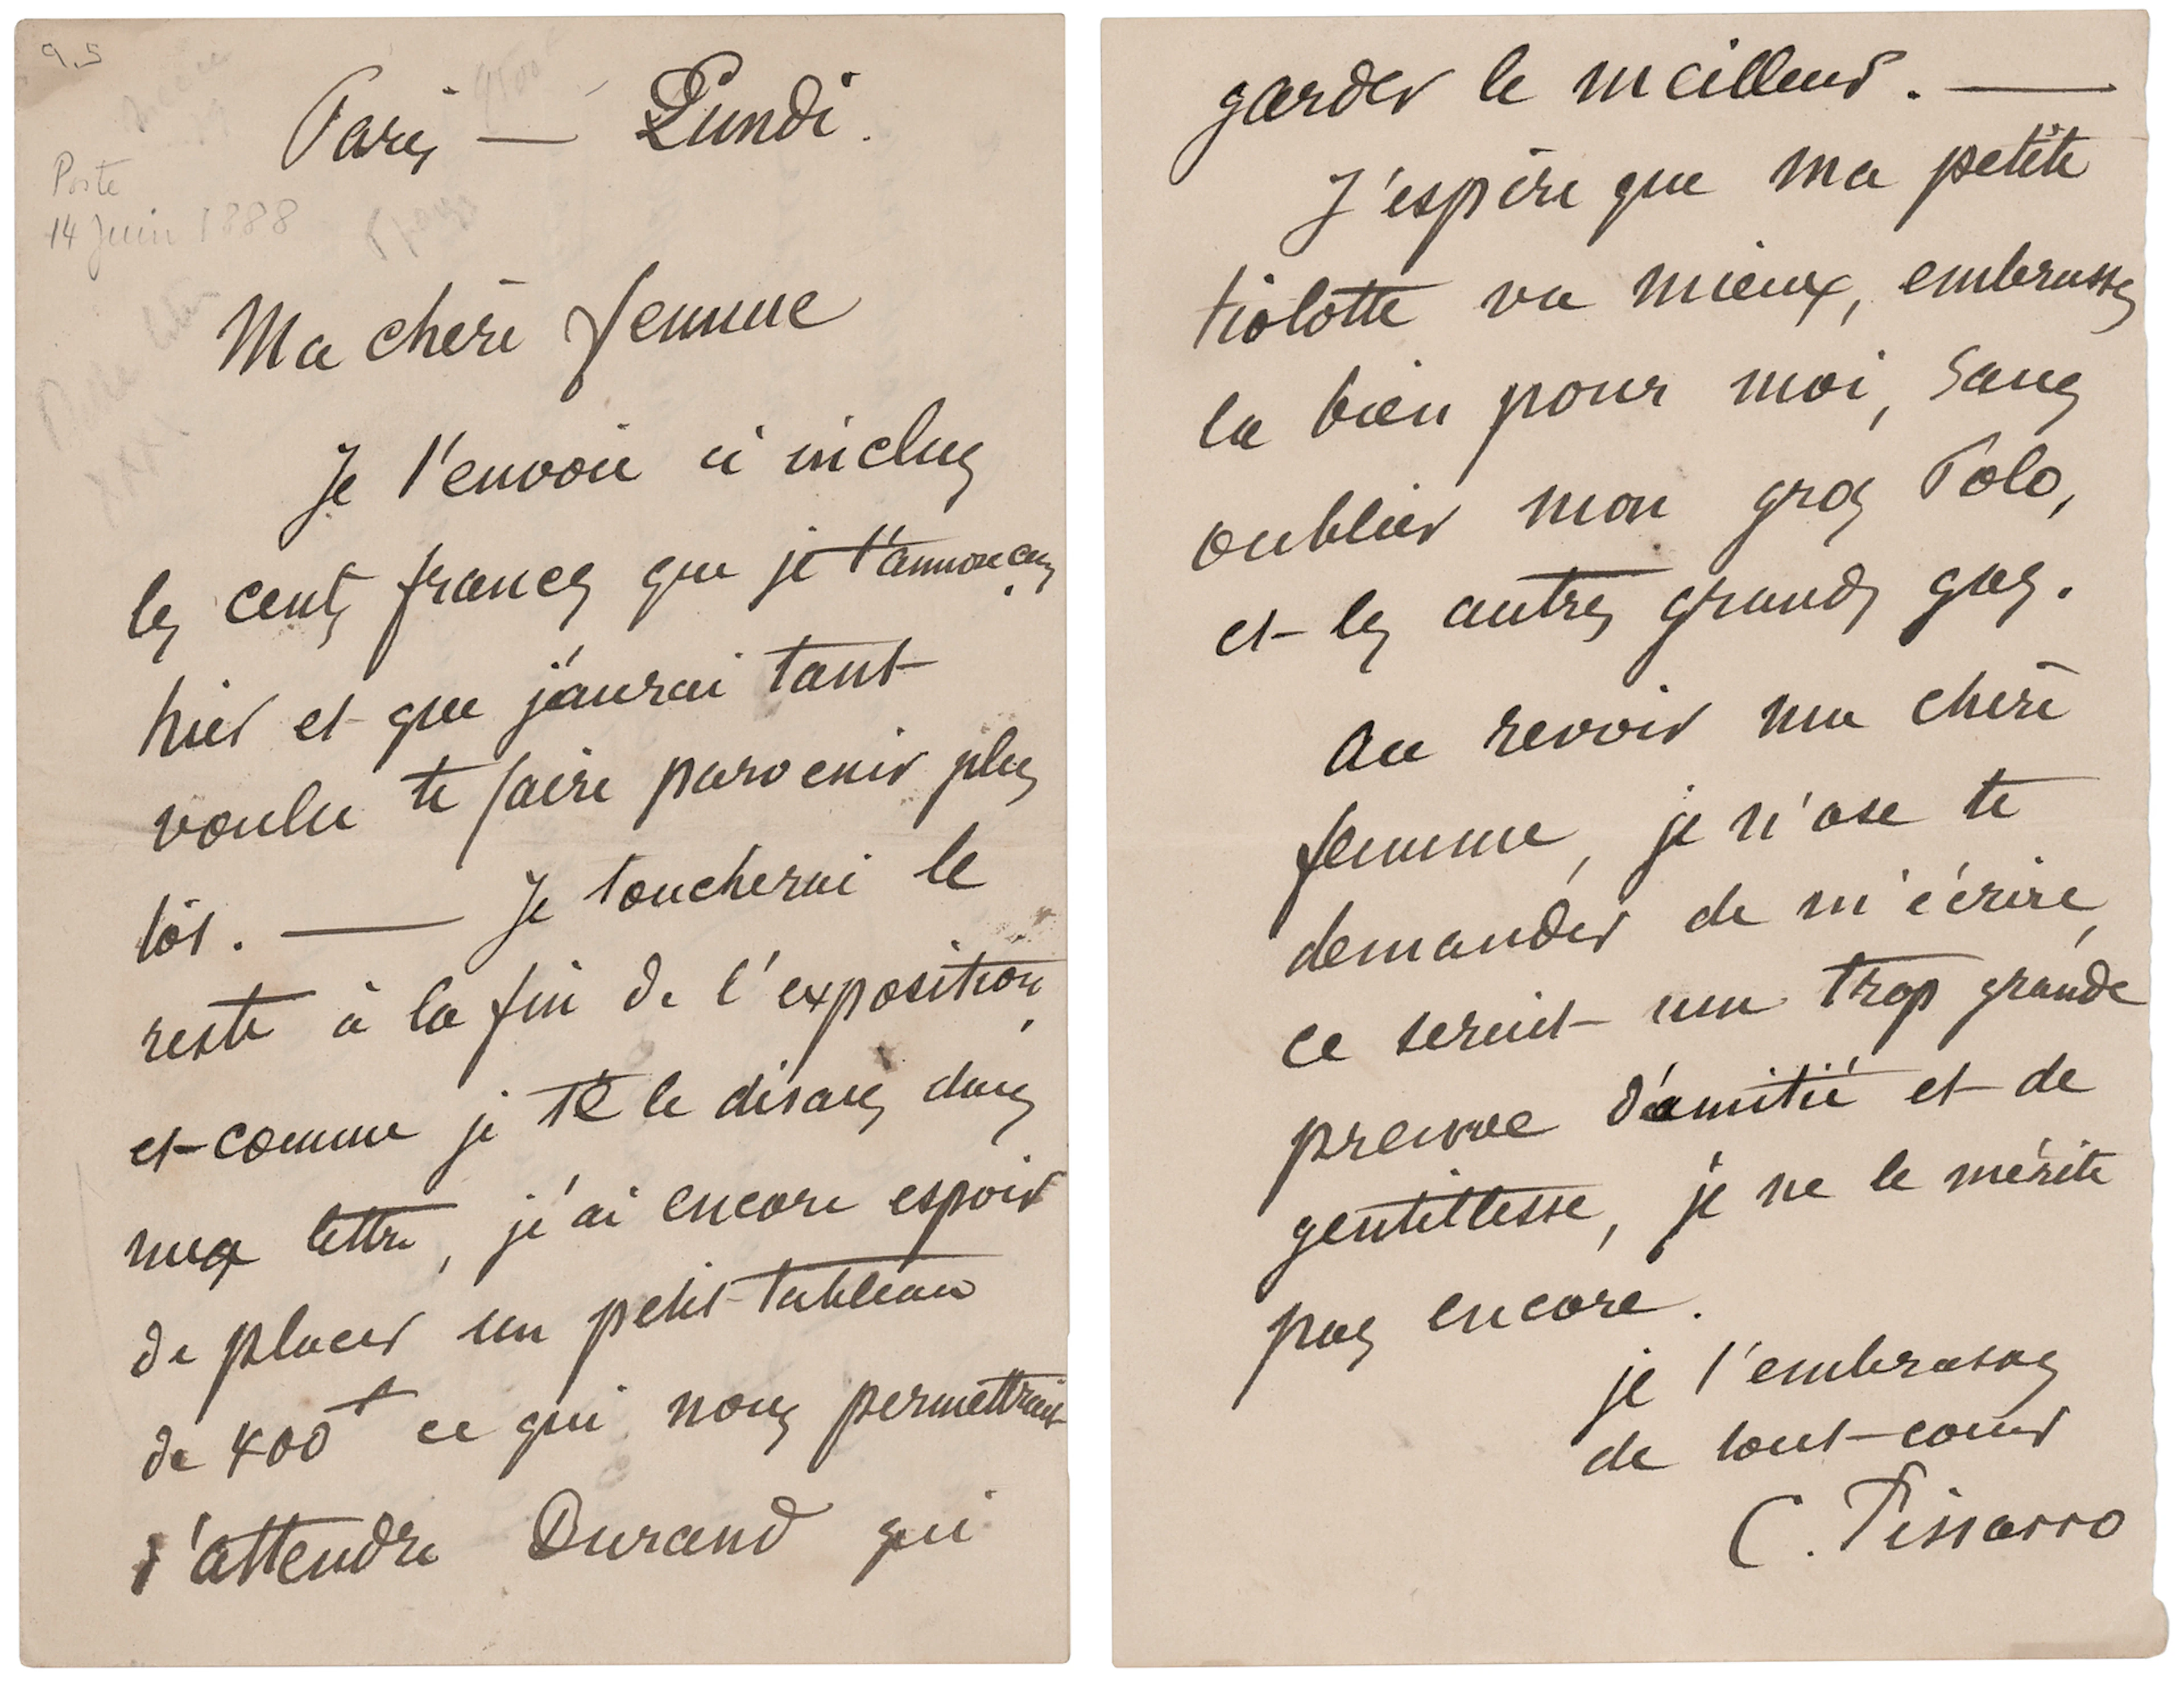 9.5
Paris — Lundi.
Poste
14 Juin 1888
Ma chère femme
Je t'envoie ci inclus
les cents francs que je t'annonçais
hier et que j'aurai tant
voulu te faire parvenir plus
tôt. — Je toucherai le
reste à la fin de l'exposition,
et comme je te le disais dans
ma lettre, j'ai encore espoir
de placer un petit tableau
de 400f ce qui nous permettrait
d'attendre Durand qui
garder le meilleur. —
J'espère que ma petite
tiolotte va mieux, embrasses
la bien pour moi, sans
oublier mon gros Polo,
et les autres grands gas.
Au revoir ma chère
femme, je n'ose te
demander de m'écrire,
ce serait une trop grande
preuve d'amitié et de
gentillesse, je ne le mérite
pas encore.
je t'embrasse
de tout cœur
C. Pissarro